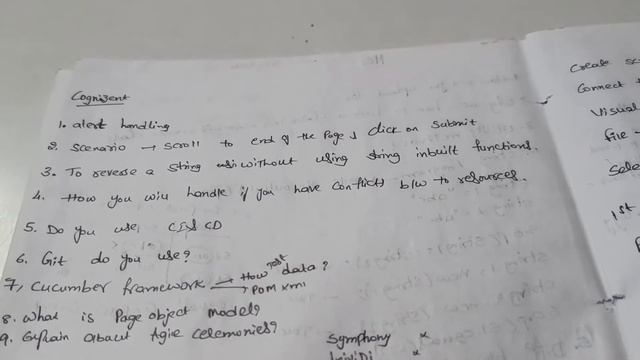 Cognizent
1. alert handling
2. Scenario → scroll to end of the Page & click on Submit
3. To reverse a string without using string inbuilt functions.
4. How you will handle if you have conflicts b/w to resources.
5. Do you use CI & CD
6. Git do you use?
7, Cucumber framework → How test data?
→ POM xml
8. What is Page object model?
9. Explain about Agile ceremonies?
Symphony
Create sc
Connect
Visual
file
Sele
1st